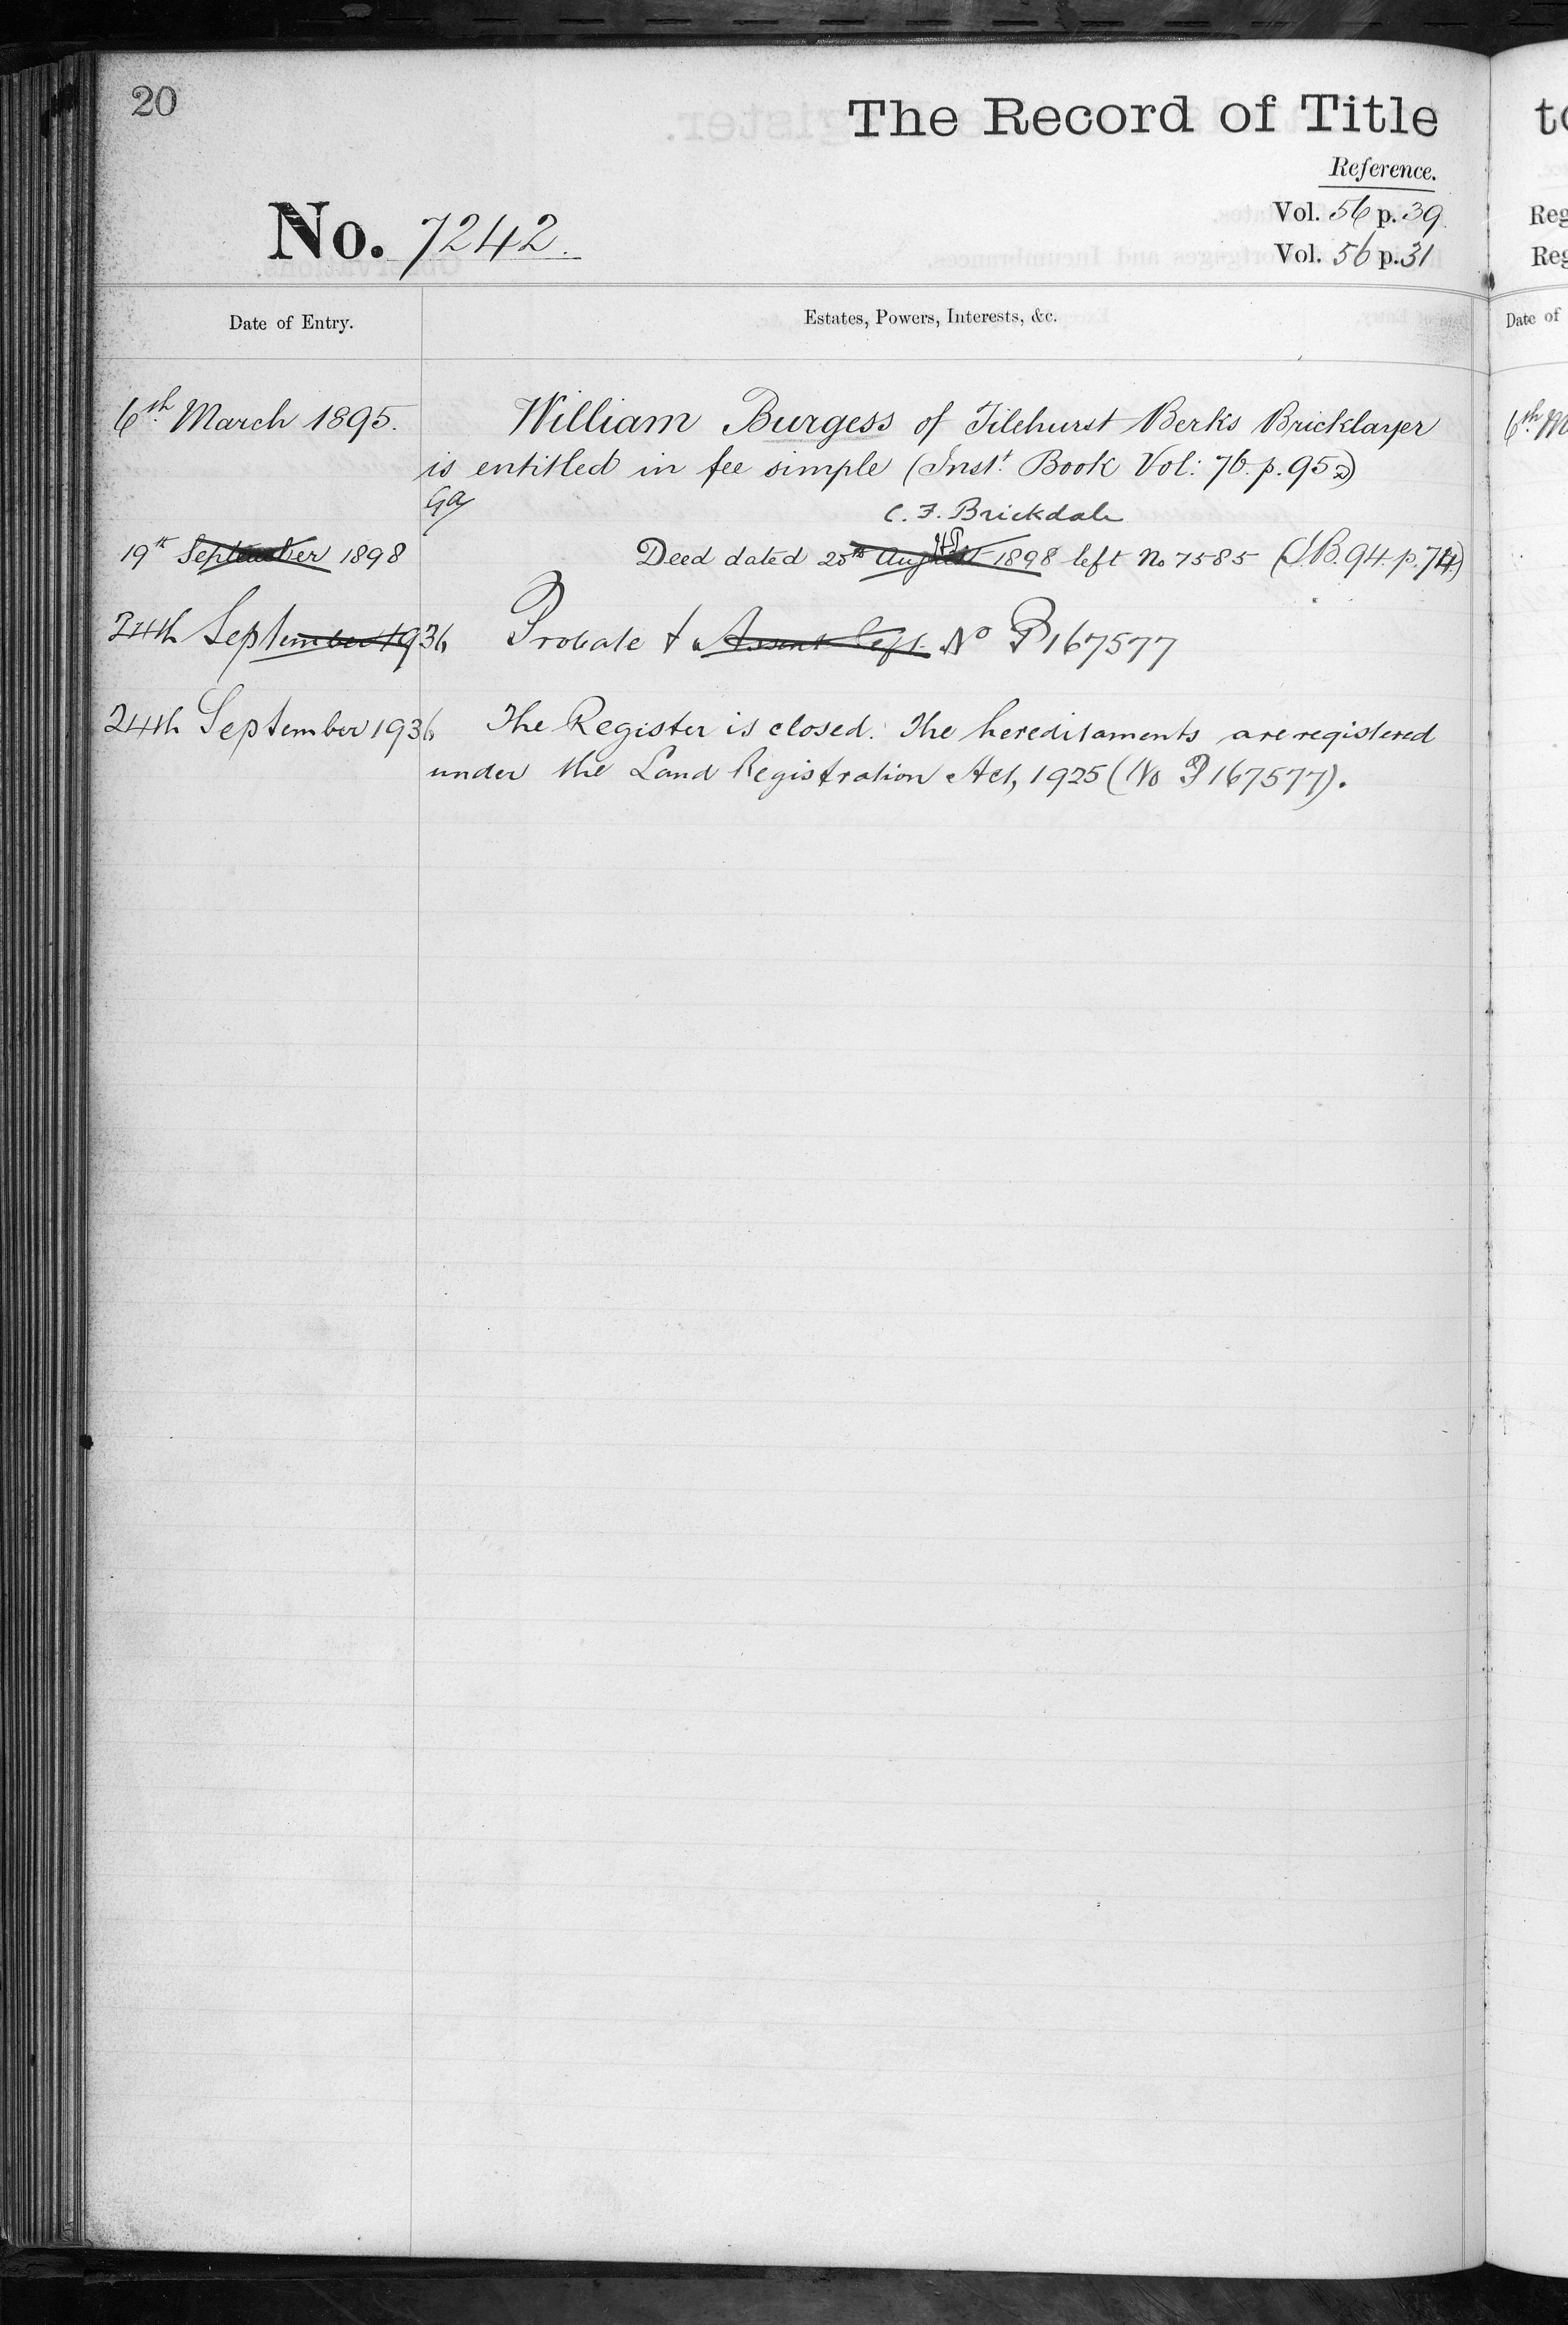 20
The Record of Title
Reference.
No. 7242.
Vol. 56 p. 39
Vol. 56 p. 31
Date of Entry.
Estates, Powers, Interests, &c.
6th March 1895.
William Burgess of Tilehurst Berks Bricklayer
is entitled in fee simple (Inst. Book Vol: 76. p. 952)
C. F. Brickdale
19th September 1898
Deed dated 25th August 1898 left No 7585 (I.B. 94. p. 74.)
24th September 1936
Probate & Assent left. No P167577
24th September 1936
The Register is closed. The hereditaments are registered
under the Land Registration Act, 1925 (No P167577).
to
Reg
Reg
Date of
6th M